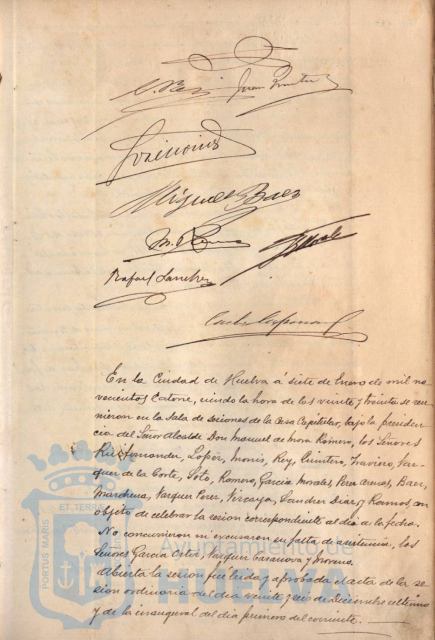 Juan Quintero
Miguel Baez
Rafael Sanchez
En la Ciudad de Huelva á siete de Enero de mil no
vecientos Catorce, siendo la hora de las veinte y treinta se reu
nieron en la Sala de sesiones de la Casa Capitular, bajo la presiden
cia del Señor Alcalde Don Manuel de Mora Romero, los Señores
Ruifernandez, López, Monís, Rey, Quintero, Traviero, Vaz
quez de la Corte, Soto, Romero, Garcia Morales, Perez Arenas, Baez,
Marchena, Vazquez Perez, Vizcaya, Sanchez Diaz y Ramos, con
objeto de celebrar la sesion correspondiente al dia de la fecha.
No concurrieron ni excusaron su falta de asistencia, los
Señores García Ortiz, Vazquez Casanova y Moreno.
Abierta la sesion fué leida y aprobada el acta de la se
sion ordinaria del dia veinte y seis de Diciembre último
y de la inaugural del dia primero del corriente.
PORTUS MARIS
ET TERRAE
Ayuntamiento de
HUELVA